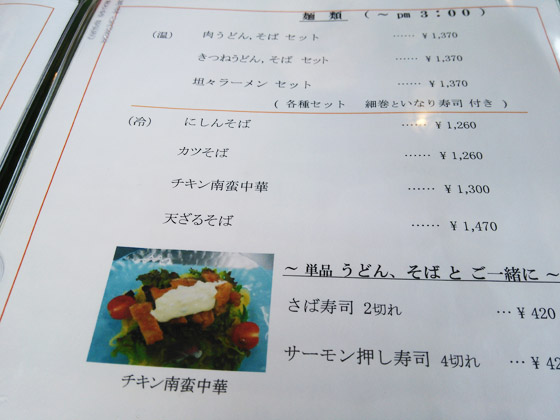 麺 類 (～ pm 3:00)
(温) 肉うどん,そば セット …… ¥ 1,370
きつねうどん,そば セット …… ¥ 1,370
坦々ラーメン セット …… ¥ 1,370
( 各種セット 細巻といなり寿司 付き )
(冷) にしんそば …… ¥ 1,260
カツそば …… ¥ 1,260
チキン南蛮中華 …… ¥ 1,300
天ざるそば …… ¥ 1,470
～ 単品 うどん、そば と ご一緒に ～
さば寿司 2切れ … ¥ 420
サーモン押し寿司 4切れ … ¥ 42
チキン南蛮中華